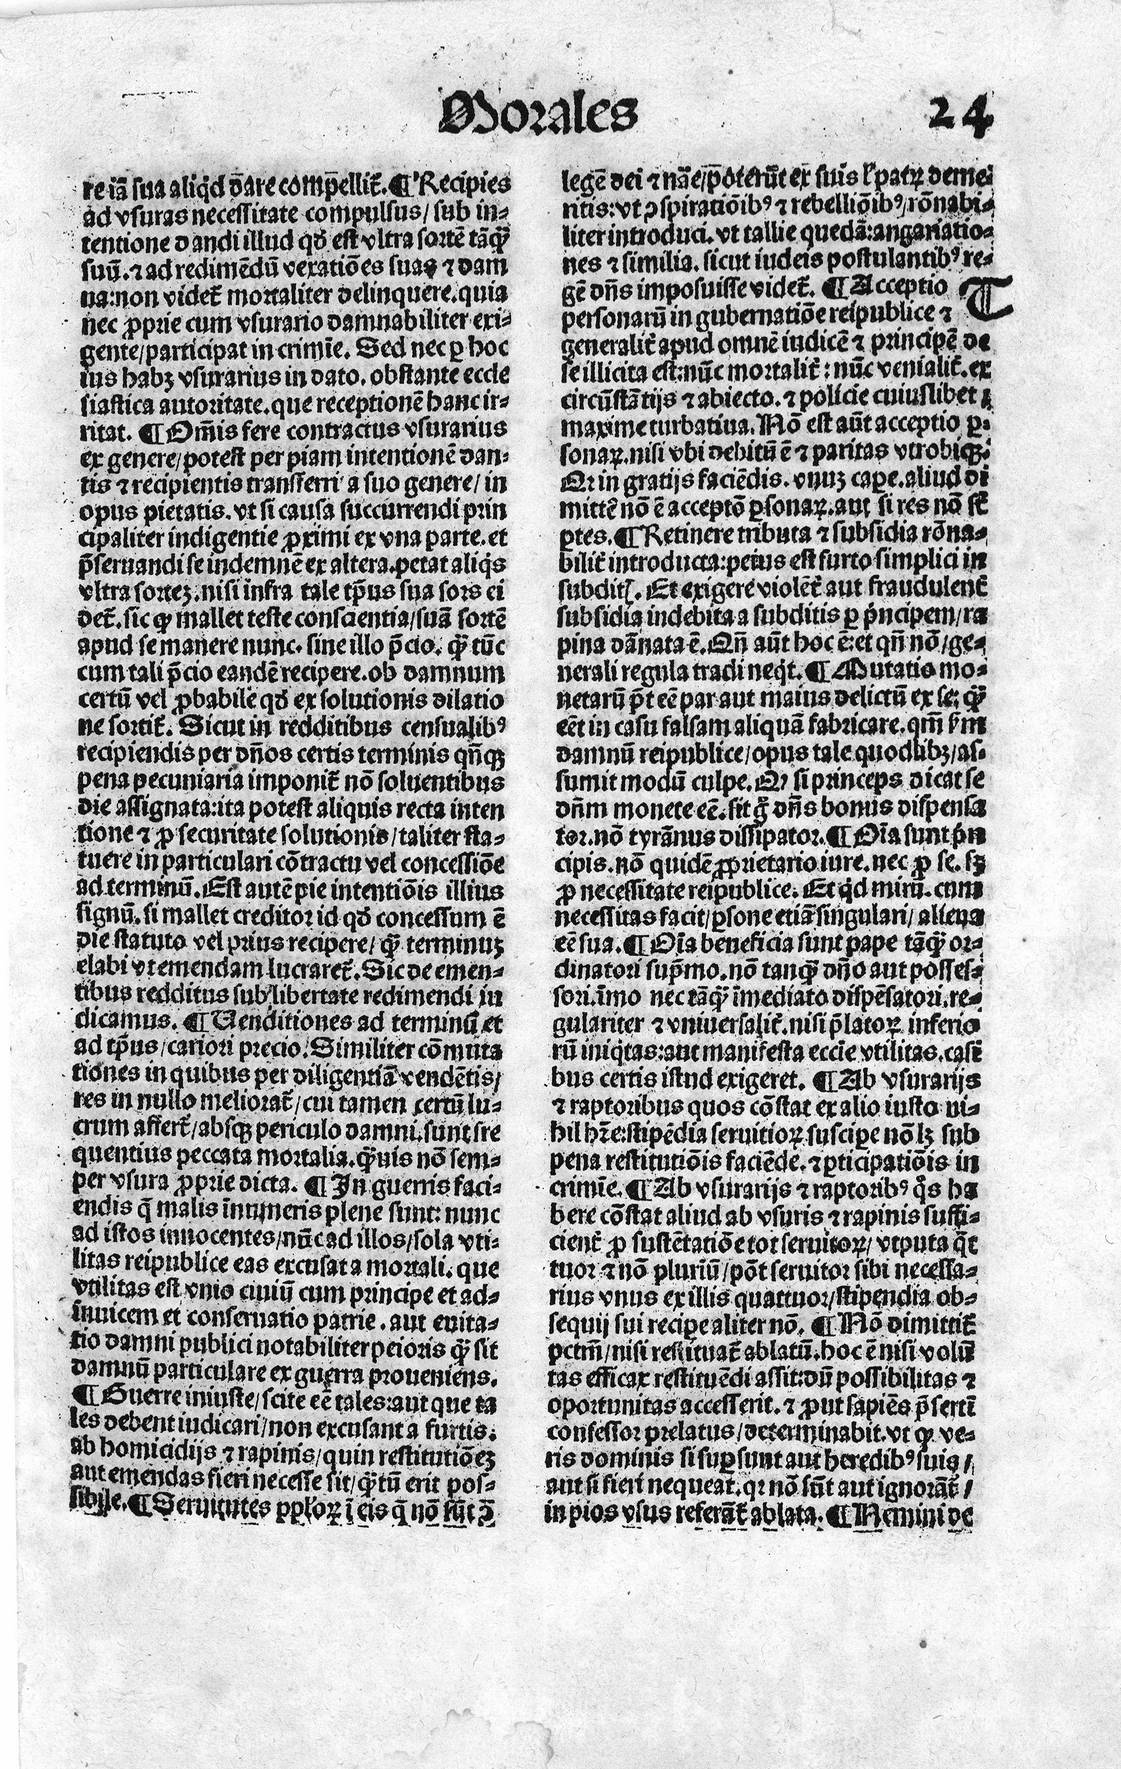 Morales 24
re iā sua aliq̇d dare compellit̄. ¶ Recipies
ad vsuras necessitate compulsus/ sub in⸗
tentione dandi illud qđ est vltra sortē tāq̄ꝫ
suū. ⁊ ad redimēdū vexatiōes suas ⁊ dam
na: non videt̄ mortaliter delinquere. quia
nec ꝓprie cum vsurario damnabiliter exi⸗
gente/ participat in crimīe. Sed nec ꝑ hoc
ius habꝫ vsurarius in dato. obstante eccle
siastica autoritate. que receptionē hanc ir⸗
ritat. ¶ Om̄is fere contractus vsurarius
ex genere/ potest per piam intentionē dan⸗
tis ⁊ recipientis transferri a suo genere/ in
opus pietatis. vt si causa succurrendi prin
cipaliter indigentie ꝓximi ex vna parte. et
p̄seruandi se indemnē ex altera. petat aliq̇s
vltra sorteꝫ. nisi infra tale tp̄us sua sors ei
det̄. sic ꝙ mallet teste conscientia/ suā sortē
apud se manere nunc. sine illo p̄cio. q̄ꝫ tūc
cum tali p̄cio eandē recipere. ob damnum
certū vel ꝓbabile qđ ex solutionis dilatio
ne sortit̄. Sicut in redditibus censualibꝰ
recipiendis per dn̄os certis terminis qn̄qꝫ
pena pecuniaria imponit̄ nō soluentibus
die assignata: ita potest aliquis recta inten
tione ⁊ ꝓ securitate solutionis/ taliter sta⸗
tuere in particulari cōtractu vel concessiōe
ad terminū. Est autē pie intentiōis illius
signū. si mallet creditor id qđ concessum ē
die statuto vel prius recipere/ q̄ꝫ terminuꝫ
elabi vt emendam lucraret̄. Sic de emen⸗
tibus redditus sub libertate redimendi iu
dicamus. ¶ Uenditiones ad terminū et
ad tp̄us/ cariori precio. Similiter cōmuta
tiones in quibus per diligentiā vendētis/
res in nullo meliorat̄/ cui tamen certū lu⸗
crum affert̄/ absqꝫ periculo damni. sunt fre
quentius peccata mortalia. q̄ꝫuis nō sem⸗
per vsura ꝓprie dicta. ¶ In guerris faci⸗
endis q̄ malis innumeris plene sunt: nunc
ad istos innocentes/ nūc ad illos/ sola vti⸗
litas reipublice eas excusat a mortali. que
vtilitas est vnio ciuiū cum principe et ad⸗
inuicem et conseruatio patrie. aut euita⸗
tio damni publici notabiliter peioris q̄ꝫ sit
damnū particulare ex guerra proueniens.
¶ Guerre iniuste/ scite eē tales: aut que ta
les debent iudicari/ non excusant a furtis.
ab homicidijs ⁊ rapinis/ quin restitutiōeꝫ
aut emendas fieri necesse sit/ q̄ꝫtū erit pos⸗
sibile. ¶ Seruitutes pp̄lorꝝ ī eis q̄ nō sūt ↄ̄
legē dei ⁊ nāe/ poterūt ex suis l̄ patrꝝ deme
ritis: vt ↄspiratiōibꝰ ⁊ rebelliōibꝰ/ rōnabi⸗
liter introduci. vt tallie quedā: angariatio⸗
nes ⁊ similia. sicut iudeis postulantibꝰ re⸗
gē dn̄s imposuisse videt̄. ¶ Acceptio T
personarū in gubernatiōe reipublice ⁊
generalit̄ apud omnē iudicē ⁊ principē de
se illicita est: nūc mortalit̄: nūc venialit̄. ex
circūstātijs ⁊ abiecto. ⁊ policie cuiuslibet
maxime turbatiua. Nō est aūt acceptio ꝑ⸗
sonaꝝ. nisi vbi debitū ē ⁊ paritas vtrobiqꝫ.
Qꝛ in gratijs faciēdis. vnuꝫ caꝑe. aliud di
mittē nō ē acceptō ꝑsonaꝝ. aut si res nō st̄
ꝑtes. ¶ Retinere tributa ⁊ subsidia rōna⸗
bilit̄ introducta: peius est furto simplici in
subdit̄. Et exigere violēt̄ aut fraudulent̄
subsidia indebita a subditis ꝑ pn̄cipem/ ra
pina dānata ē. Qn̄ aūt hoc ē: et qn̄ nō/ ge⸗
nerali regula tradi neq̇t. ¶ Mutatio mo⸗
netarū p̄t eē par aut maius delictū ex se. q̄ꝫ
eēt in casu falsam aliquā fabricare. qm̄ ẜm
damnū reipublice/ opus tale quodlibꝫ/ as⸗
sumit modū culpe. Qꝛ si princeps dicat se
dn̄m monete eē. sit g̊ dn̄s bonus dispensa
tor. nō tyrānus dissipator. ¶ Oīa sunt pn̄
cipis. nō quidē ꝓprietario iure. nec ꝓ se. sꝫ
ꝓ necessitate reipublice. Et q̇d mirū. cum
necessitas facit/ ꝑsone etiā singulari/ aliena
eē sua. ¶ Oīa beneficia sunt pape tāq̄ꝫ or⸗
dinatori sup̄mo. nō tanq̄ꝫ dn̄o aut posses⸗
sori. īmo nec tāq̄ꝫ īmediato dispēsatori. re⸗
gulariter ⁊ vniuersalit̄. nisi p̄latoꝝ inferio
rū iniq̇tas: aut manifesta eccīe vtilitas. casi
bus certis istud exigeret. ¶ Ab vsurarijs
⁊ raptoribus quos cōstat ex alio iusto ni⸗
hil hr̄e: stipēdia seruitioꝝ suscipe nō lꝫ sub
pena restitutiōis faciēde. ⁊ ꝑticipatiōis in
crimīe. ¶ Ab vsurarijs ⁊ raptoribꝰ q̊s ha
bere cōstat aliud ab vsuris ⁊ rapinis suffi⸗
cient̄ ꝓ sustētatiōe tot seruitoꝝ/ vtputa q̄t
tuor ⁊ nō pluriū/ pōt seruitor sibi necessa⸗
rius vnus ex illis quattuor/ stipendia ob⸗
sequij sui recipe aliter nō. ¶ Nō dimittit̄
pctm̄/ nisi restituat̄ ablatū. hoc ē nisi volū
tas efficax restituēdi assit: dū possibilitas ⁊
oportunitas accesserit. ⁊ ꝓut sapiēs p̄sertī
confessor prelatus/ determinabit. vt ꝙ ve⸗
ris dominis si suꝑsunt aut heredibꝰ suis/
aut si fieri nequeat. qꝛ nō sūt aut ignorāt̄/
in pios vsus referāt̄ ablata. ¶ Nemini de